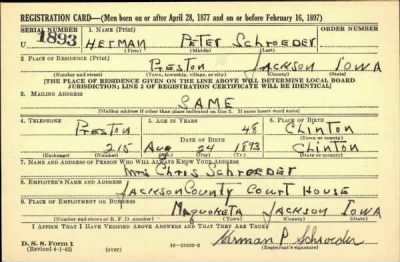 REGISTRATION CARD—(Men born on or after April 28, 1877 and on or before February 16, 1897)
SERIAL NUMBER 1. NAME (Print) ORDER NUMBER
U 1893 HERMAN PETER SCHROEDER
(First) (Middle) (Last)
2. PLACE OF RESIDENCE (Print)
PRESTON JACKSON IOWA
(Number and street) (Town, township, village, or city) (County) (State)
[THE PLACE OF RESIDENCE GIVEN ON THE LINE ABOVE WILL DETERMINE LOCAL BOARD
JURISDICTION; LINE 2 OF REGISTRATION CERTIFICATE WILL BE IDENTICAL]
3. MAILING ADDRESS
SAME
[Mailing address if other than place indicated on line 2. If same insert word same]
4. TELEPHONE 5. AGE IN YEARS 6. PLACE OF BIRTH
PRESTON 48 CLINTON
DATE OF BIRTH (Town or county)
215 Aug 24 1893 CLINTON
(Exchange) (Number) (Mo.) (Day) (Yr.) (State or country)
7. NAME AND ADDRESS OF PERSON WHO WILL ALWAYS KNOW YOUR ADDRESS
MRS CHRIS SCHROEDER
8. EMPLOYER'S NAME AND ADDRESS
JACKSON COUNTY COURT HOUSE
9. PLACE OF EMPLOYMENT OR BUSINESS
MAQUOKETA JACKSON IOWA
(Number and street or R. F. D. number) (Town) (County) (State)
I AFFIRM THAT I HAVE VERIFIED ABOVE ANSWERS AND THAT THEY ARE TRUE.
D. S. S. Form 1
(Revised 4-1-42) (over) Herman P Schroeder
(Registrant's signature)